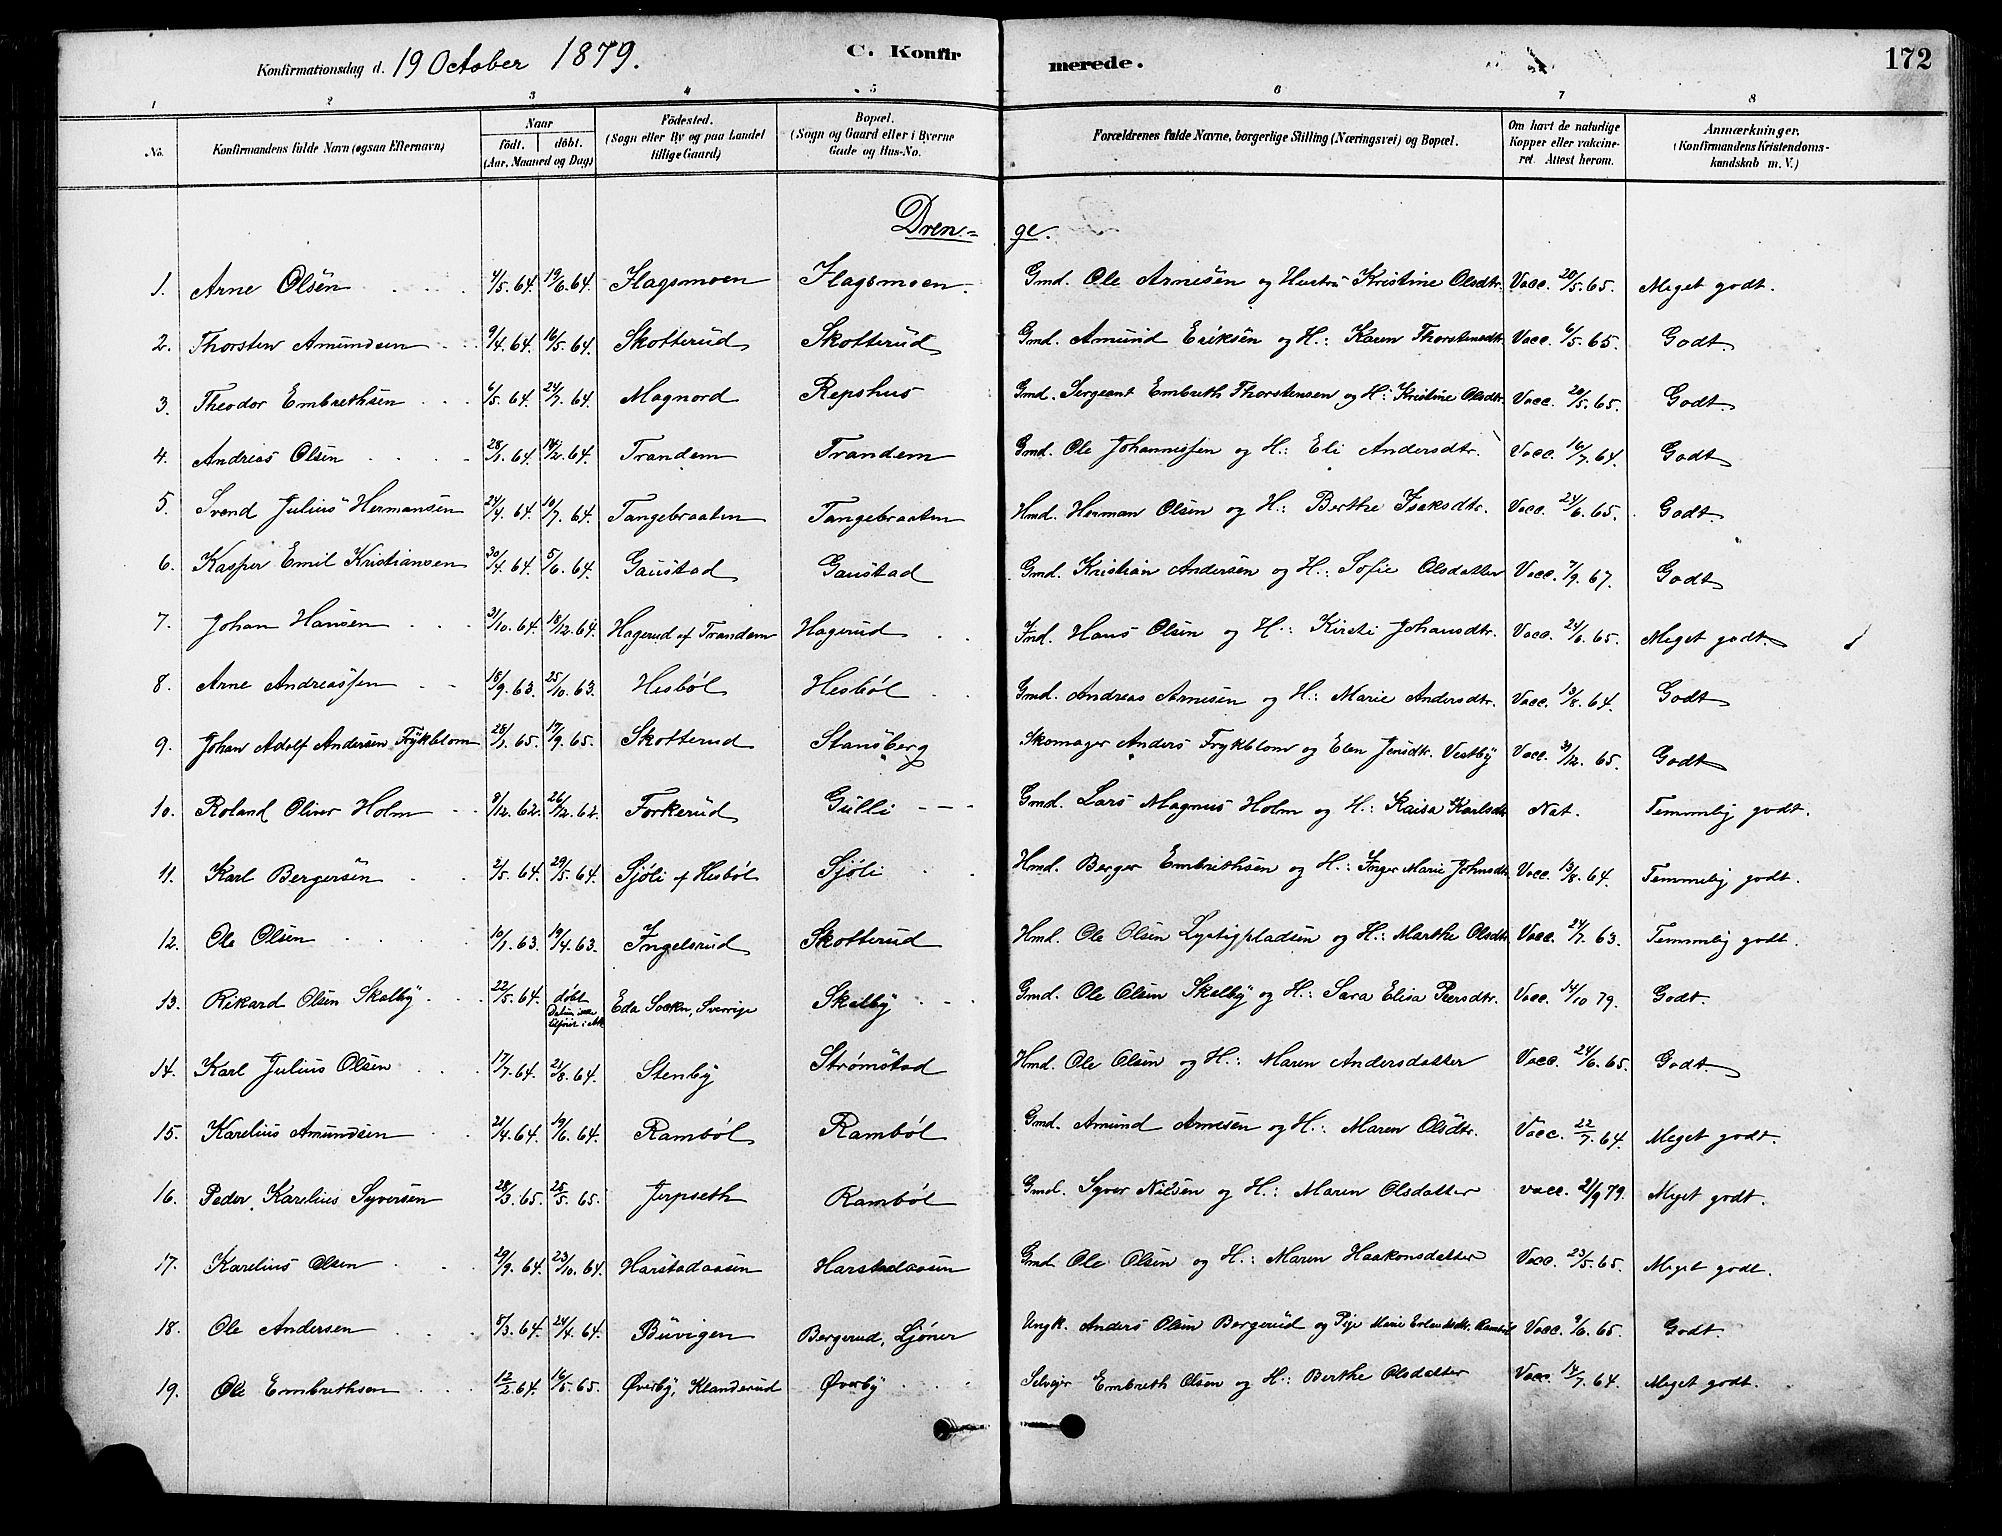 Konfirmationsdag d. 19 October 1879.
C. Konfir
merede.
172
1 2 3 4 5 6 7 8
No. Konfirmandens fulde Navn (ogsaa Efternavn) Naar født. døbt. (Aar, Maaned og Dag) Fødested. (Sogn eller By og paa Landet tillige Gaard) Bopæl. (Sogn og Gaard eller i Byerne Gade og Hus-No. Forældrenes fulde Navne, borgerlige Stilling (Næringsvei) og Bopæl. Om havt de naturlige Kopper eller vakcineret. Attest herom. Anmærkninger. (Konfirmandens Kristendomskundskab m. V.)
Dren=ge.
1. Arne Olsen 4/5.64. 19/6.64. Flagsmoen Flagsmoen Gmd. Ole Arnesen og Hustru Kristine Olsdtr. Vacc. 20/5.65. Meget godt.
2. Thorsten Amundsen 9/4.64. 16/5.64. Skotterud Skotterud Gmd. Amund Eriksen og H.: Karen Thorstensdtr. Vacc. 6/5.65. Godt.
3. Theodor Embrethsen 6/5.64. 24/7.64. Magnord Repshus Gmd. Sergeant Embreth Thorstensen og H.: Kristine Olsdtr. Vacc. 20/5.65. Godt.
4. Andreas Olsen 28/1.64. 14/2.64. Trandem Trandem Gmd. Ole Johannessen og H.: Eli Andersdtr. Vacc. 16/7.64. Godt
5. Svend Julius Hermansen 24/4.64. 10/7.64. Tangebraaten Tangebraaten Hmd. Herman Olsen og H.: Berthe Isaksdtr. Vacc. 24/6.65. Godt.
6. Kasper Emil Kristiansen 30/4.64. 5/6.64. Gaustad Gaustad Gmd. Kristian Andersen og H.: Sofie Olsdatter Vacc. 7/9.67. Godt
7. Johan Hansen 31/10.64. 18/12.64. Hagerud af Trandem Hagerud Ind. Hans Olsen og H.: Kirsti Johansdtr. Vacc. 24/6.65. Meget godt.
8. Arne Andreassen 18/9.63. 25/10.63. Hesbøl Hesbøl Gmd. Andreas Arnesen og H.: Marie Andersdtr. Vacc. 13/8.64. Godt
9. Johan Adolf Andersen Frykblom 28/1.65. 17/9.65. Skotterud Stansberg Skomager Anders Frykblom og Elen Jensdtr. Vestby Vacc. 31/12.65. Godt
10. Roland Oliver Holm 8/12.62. 26/12.62. Forkerud Gulli Gmd. Lars Magnus Holm og H.: Kaisa Karlsdtr Nat. Temmelig godt.
11. Karl Bergersen 2/5.64. 29/5.64. Sjøli af Hesbøl Sjøli Hmd. Berger Embrethsen og H.: Inger Marie Johnsdtr. Vacc. 13/8.64. Temmelig godt.
12. Ole Olsen 10/1.63. 19/4.63. Ingelsrud Skotterud Hmd. Ole Olsen Lystigpladsen og H.: Marthe Olsdtr. Vacc. 24/7.63. Temmelig godt.
13. Rikard Olsen Skalby 22/5.64. døbt Eda Socken, Sverrige Skalby Gmd. Ole Olsen Skalby og H.: Sara Elisa Persdtr. Vacc. 14/10 79. Godt.
14. Karl Julius Olsen 17/7.64. 21/8.64. Stenby Strømstad Hmd. Ole Olsen og H.: Maren Andersdatter Vacc. 24/6.65. Godt.
15. Karelius Amundsen 21/4.64. 19/6.64. Rambøl Rambøl Gmd. Amund Arnesen og H.: Maren Olsdtr. Vacc. 22/7.64. Meget godt.
16. Peder Karelius Syversen 28/3.65. 25/5.65. Jerpseth Rambøl Gmd. Syver Nilsen og H.: Maren Olsdatter vacc. 21/9 79. Meget godt.
17. Karelius Olsen 29/9.64. 23/10.64. Harstadaasen Harstadaasen Gmd. Ole Olsen og H.: Maren Haakonsdatter Vacc. 23/5.65. Meget godt.
18. Ole Andersen 8/3.64. 24/4.64. Buvigen Bergerud, Ljøner Ungk. Anders Olsen Bergerud og Pige Marie Erlandsdtr. Rambøl Vacc. 9/6.65. Godt.
19. Ole Embrethsen 12/2.64. 16/5.65. Øverby, Klanderud Øverby Selvejer Embreth Olsen og H.: Berthe Olsdatter Vacc. 14/7.64. Meget godt.